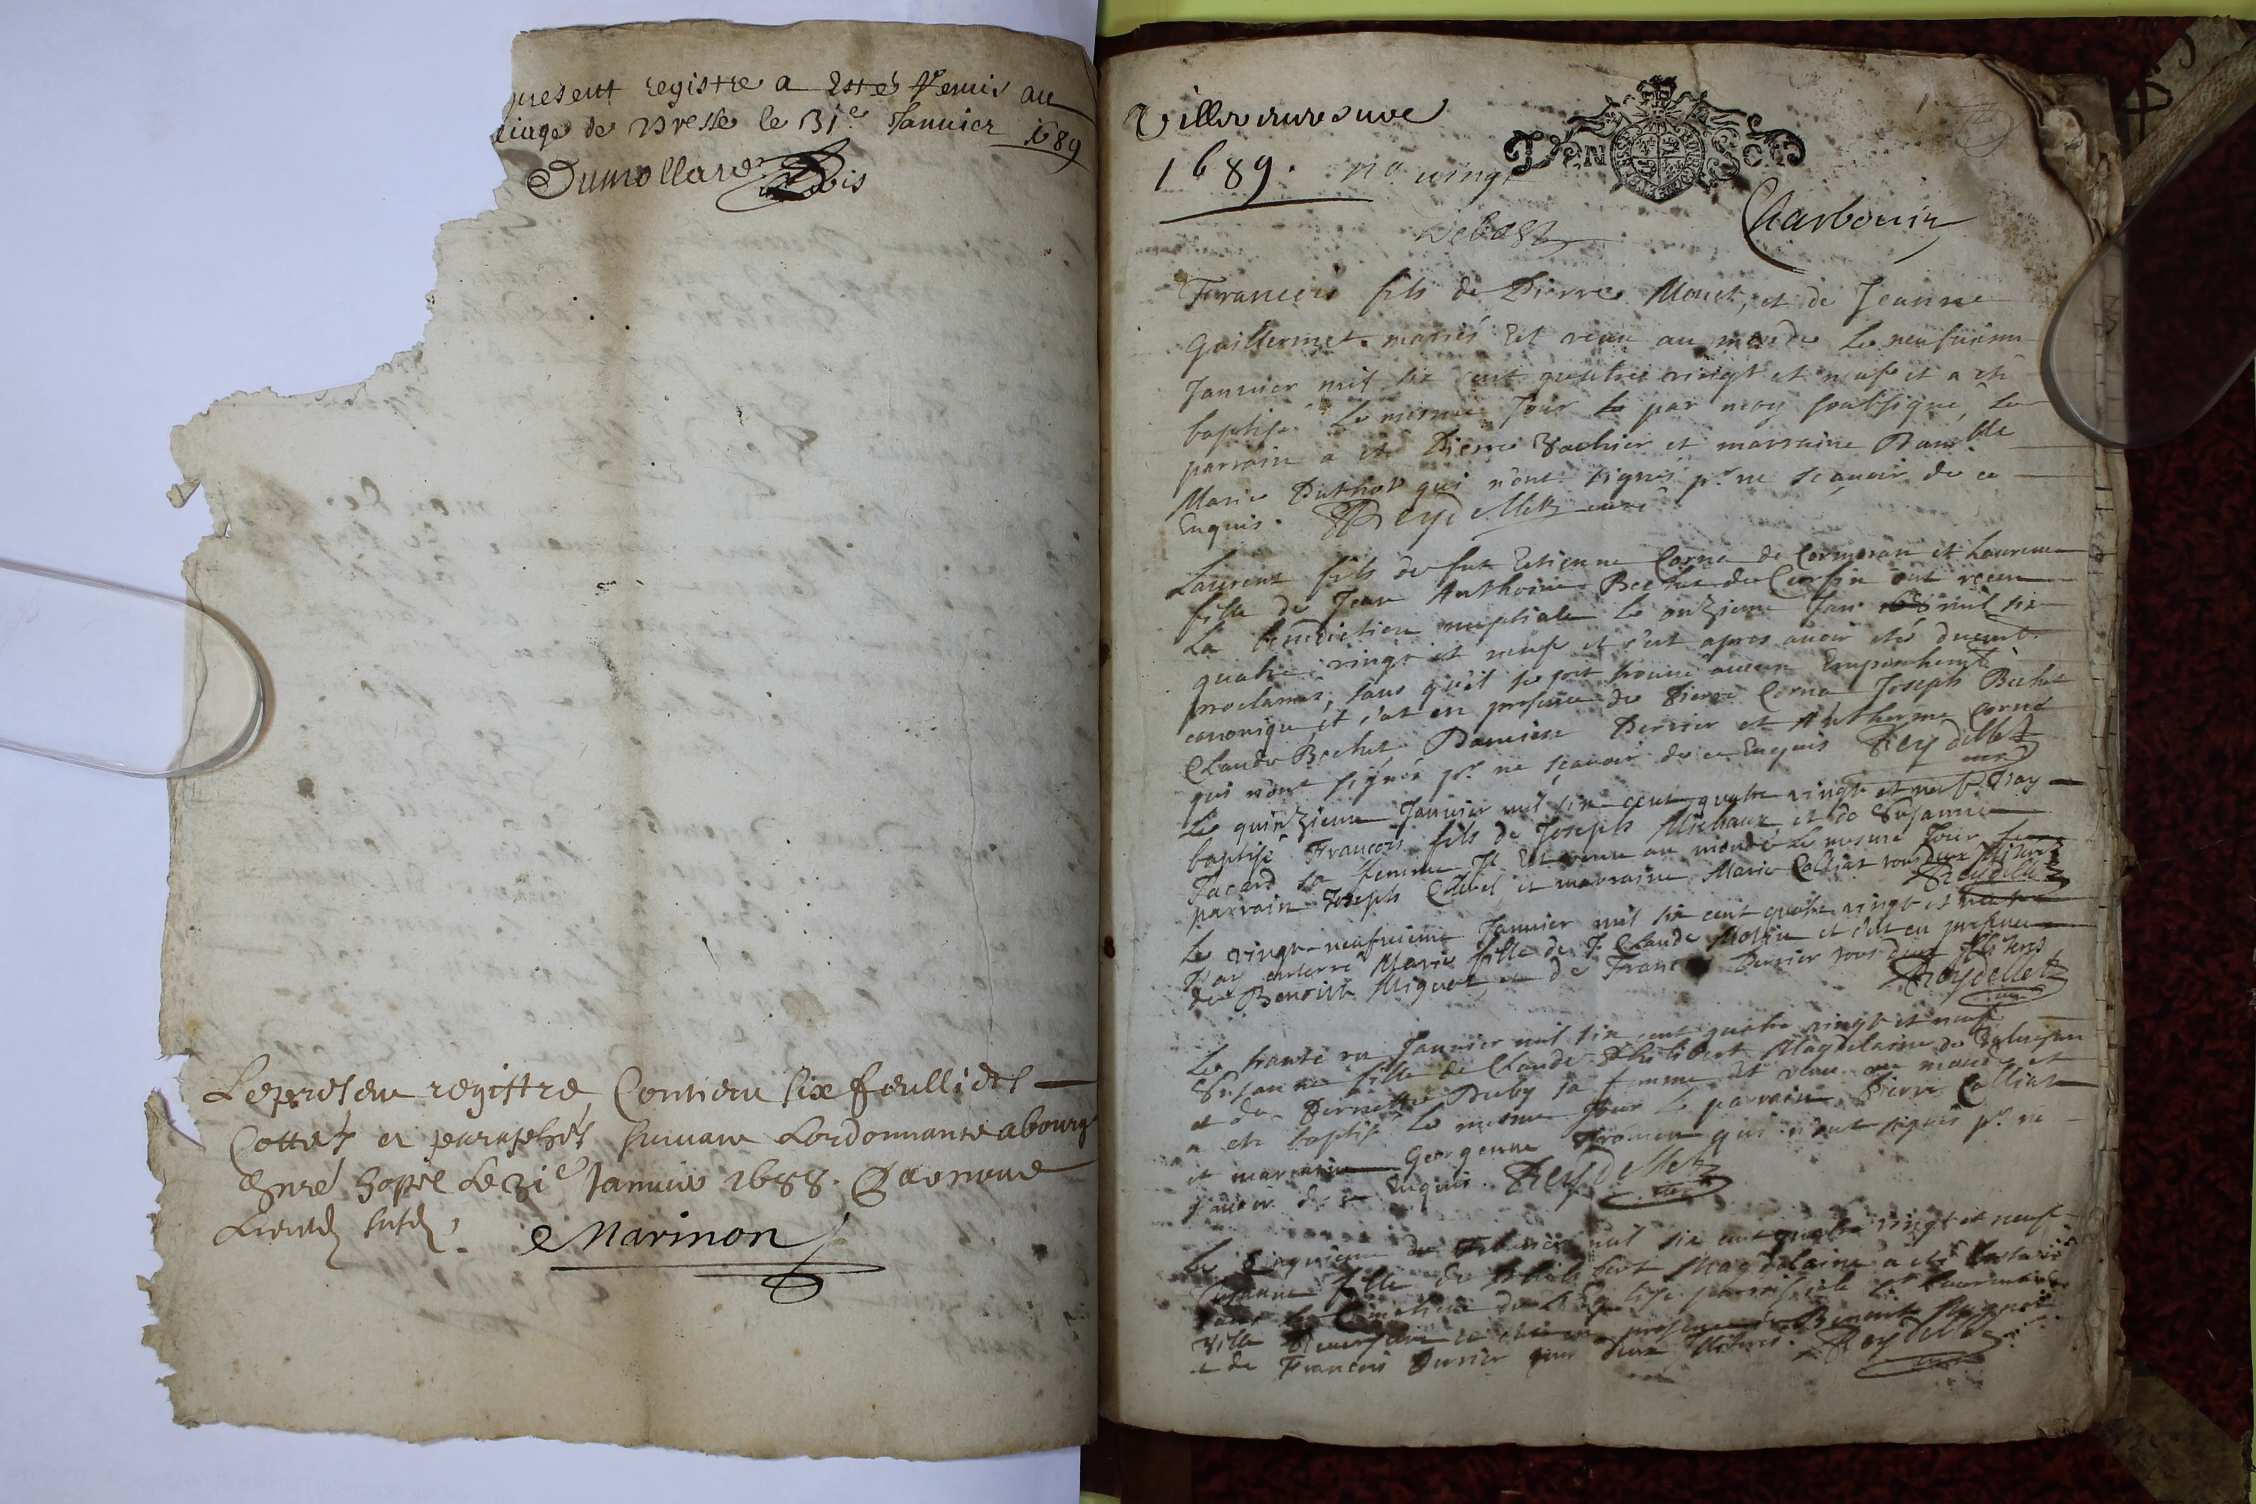 present registre a Esté Remis au
de Bresse le 31e Janvier 1689
Dumollard
Le present registre Contient six feuillets
Cottés et paraphés suivant Lordonnance a bourg
Le 31e Janvier 1688.
Marinon
Villereversure
1689.
Charbonin
Francois fils de Pierre Monet, et de Jeanne
Guillermet mariés Est venu au monde Le neufuieme
Januier mil six cent quattre vingt et neuf et a ete
baptisé Le mesme Jour par moy soubsigné, Le
parrain a ete Pierre Vachier et marraine Dam.lle
Marie qui n'ont signés p.r ne scauoir de ce
Enquis. Reydellet curé
Laurent fils de fut Estienne Corne de Cormoran et Laurence
fille de Jean Anthoine Bechet de ont receu
La benediction nuptiale Le onzieme Jan. mil six
quatre vingt et neuf et c'est apres auoir eté duemt.
proclamés, sans qu'il se soit trouué aucun Empeschemt.
canonique, et c'at en presence de Pierre Corne Joseph Bechet
Claude Bechet Damien Perrier et Anthelme Corne
qui n'ont signés p.r ne sçauoir de ce Enquis Reydellet
Le quinzieme Januier mil six cent quatre vingt et neuf J'ay
baptisé Francois fils de Joseph Michaux et de Susanne
Tacard sa femme Il Est venu au monde Le mesme Jour
parrain Joseph et marraine Marie Colliat tous deux
Reydellet
Le vingt-neufuieme Januier mil six cent quatre vingt et neuf
J'ay enterré Marie fille de J. Claude et c'est en presence
de Benoist Mignot et de Francois Perrier tous deux
Reydellet
Le trante un Januier mil six cent quatre vingt et neuf
Susanne fille de Claude Philibert Magdelaine de
et de Pernette Puby sa femme Est venu au monde et
a ete baptisé Le mesme Jour Le parrain Pierre Colliat
et marraine Georgenne qui n'ont signés p.r ne
scauoir de ce Enquis. Reydellet
Le Cinquieme de Feburier mil six cent quatre vingt et neuf
Susanne fille de Philibert Magdelaine a eté Enterré
dans Le Cimetiere de L'Eglise parroissiale St Laurent de
Ville Reuersure et c'est en presence de Benoist Mignot
et de Francois Perrier tous deux. Reydellet